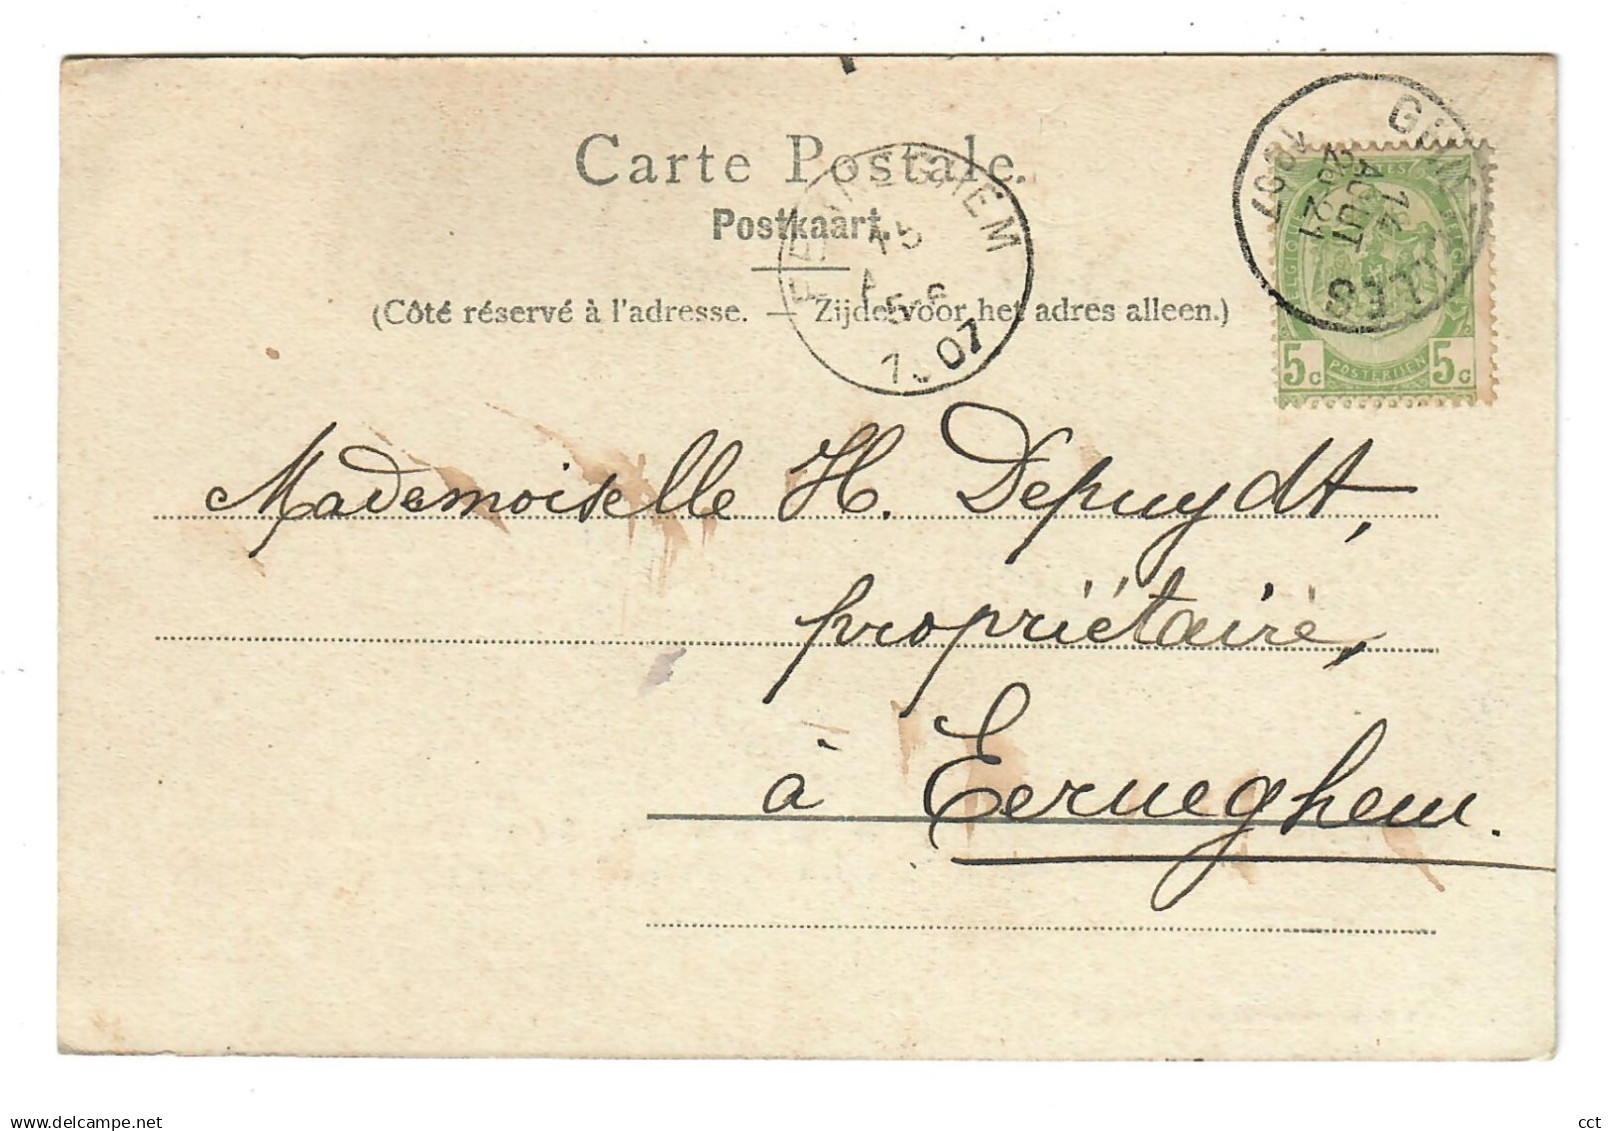 Carte Postale.
Postkaart.
(Côté réservé à l'adresse. — Zijde voor het adres alleen.)
GHISTELLES
14
AOUT
21
1907
15
5-6
07
5c POSTERIJEN 5c
Mademoiselle H. Depuydt,
propriétaire,
à Eerneghem.
Delcampe.net
cct